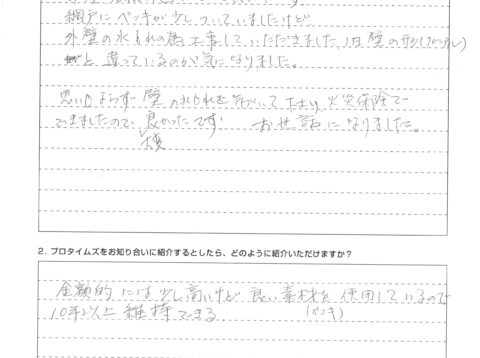 網戸にペンキが少しついていましたけど
外壁の水もれの為工事していただきました、旧壁の
と違っているのが気になりました。
思いよらず壁の水もれを気づいて下さり火災保険で
できましたので、良かったです。 お世話になりました。
2. プロタイムズをお知り合いに紹介するとしたら、どのように紹介いただけますか？
金額的には少し高いけど良い素材を使用しているので
(ペンキ)
10年以上維持できる